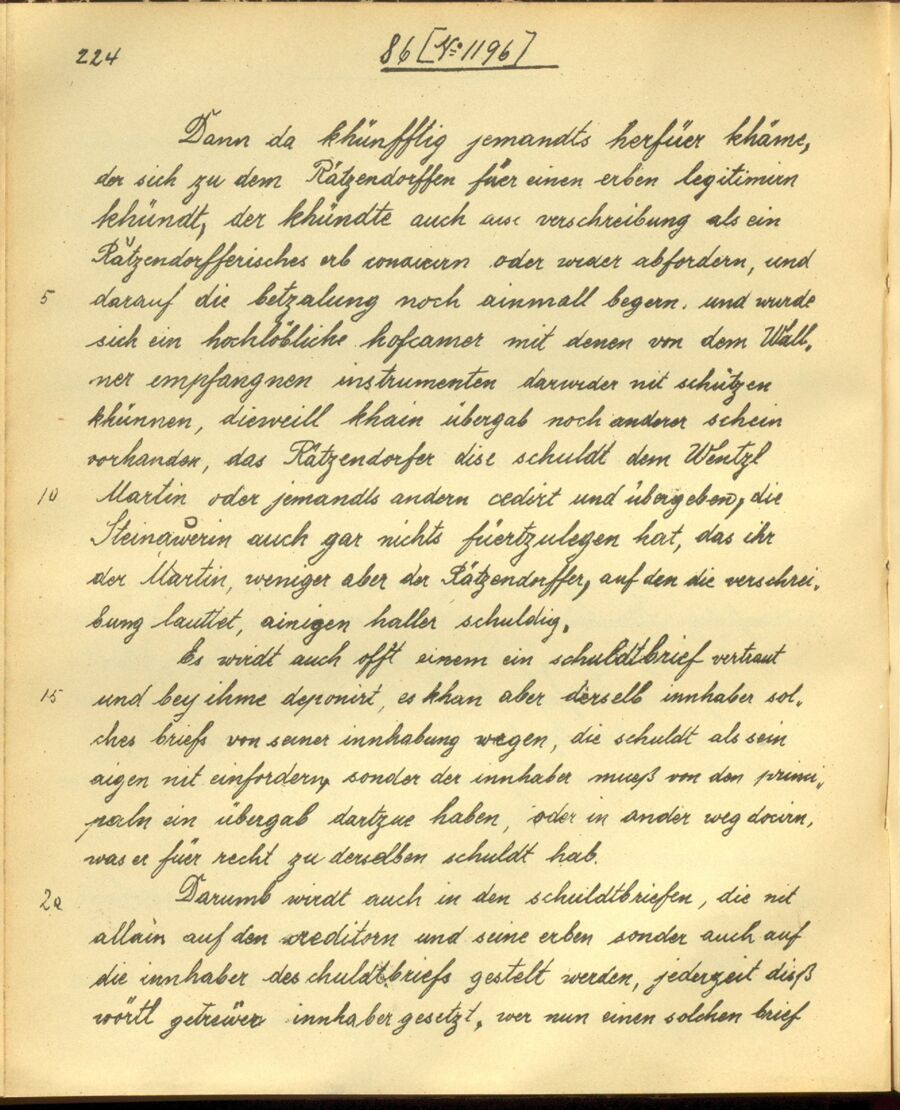 224
86 [No 1196]
Dann da khünfftig jemandts herfüer khäme,
der sich zu dem Rätzendorffen füer einen erben legitimirn
khündt, der khündte auch verschreibung als ein
Rätzendorfferisches erb oder wider abfordern, und
5 darauf die betzalung noch ainmall begern. und wurde
sich ein hochlöbliche hofcamer mit denen von dem Wäll„
ner empfangnen instrumenten darwider nit schützen
khünnen, dieweill khain übergab noch anderer schein
vorhanden, das Rätzendorfer dise schuldt dem Wentzl
10 Martin oder jemandts andern cedirt und übergeben, die
Steinawerin auch gar nichts füertzulegen hat, das ihr
der Martin, weniger aber der Rätzendorffer, auf den die verschrei„
bung lauttet, ainigen haller schuldig.
Es wirdt auch offt einem ein schuldtbrief vertraut
15 und bey ihme deponirt, es khan aber derselb innhaber sol„
ches briefs von seiner innhabung wegen, die schuldt als sein
aigen nit einfordern, sonder der innhaber mueß von den princi„
paln ein übergab dartzue haben, oder in ander weg docirn,
was er füer recht zu derselben schuldt hab.
20 Darumb wirdt auch in den schuldtbriefen, die nit
allain auf den creditorn und seine erben sonder auch auf
die innhaber des chuldtbriefs gestelt werden, jederzeit diß
wörtl getrewer innhaber gesetzt, wer nun einen solchen brief